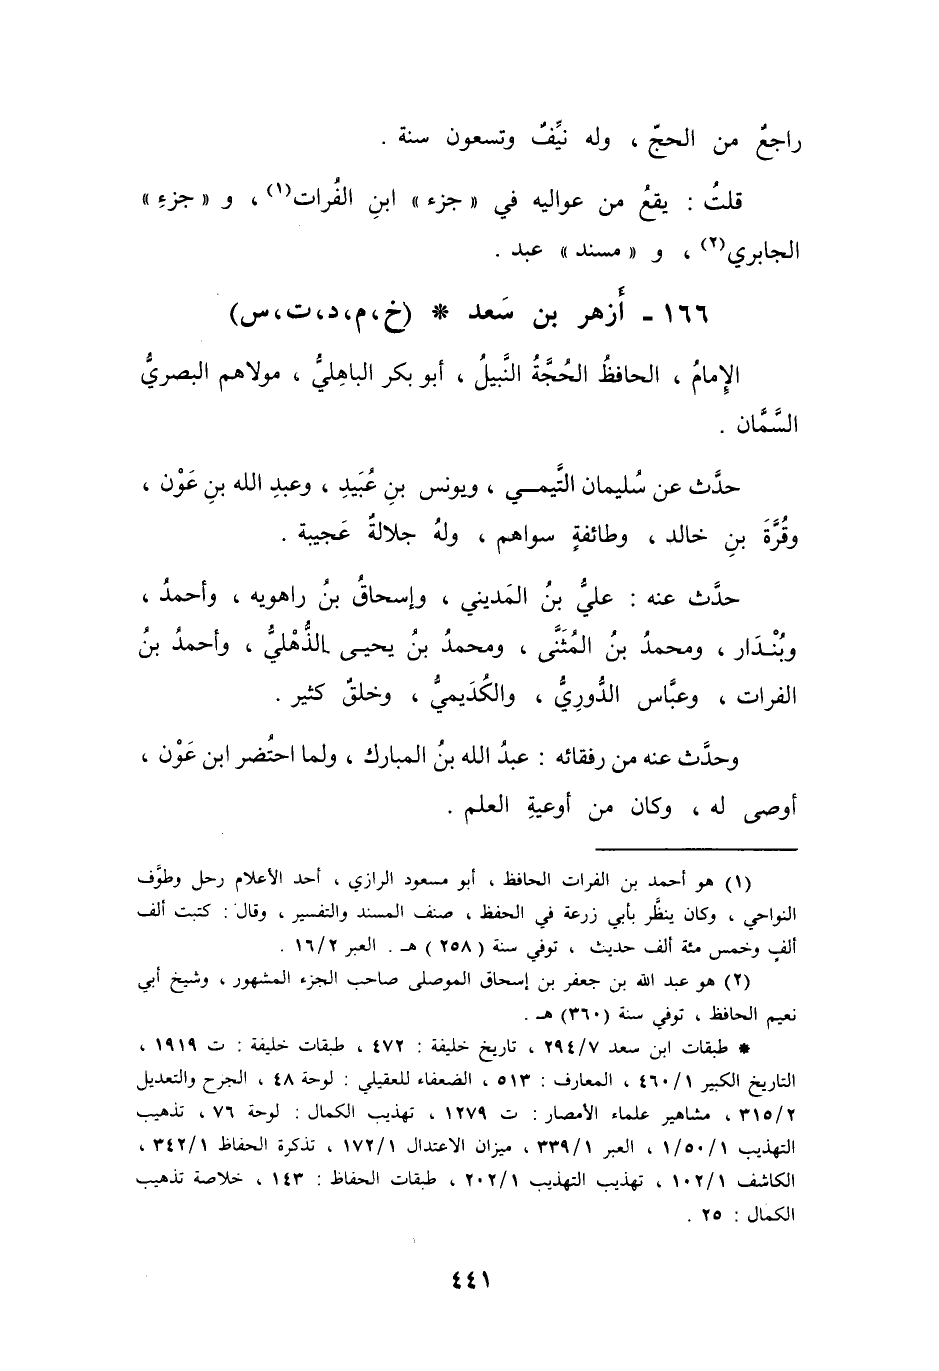 راجعٌ من الحجّ ، وله نيِّفٌ وتسعون سنة .
قلتُ : يقعُ من عواليه في « جزء » ابنِ الفُرات(١) ، و « جزءِ »
الجابري(٢) ، و « مسند » عبد .
١٦٦ - أَزهر بن سَعد * (خ،م،د،ت،س)
الإِمامُ ، الحافظُ الحُجَّةُ النَّبيلُ ، أبو بكر الباهِليُّ ، مولاهم البصريُّ
السَّمَّان .
حدَّث عن سُليمان التَّيمـي ، ويونس بنِ عُبَيدِ ، وعبدِ الله بنِ عَوْن ،
وقُرَّةَ بنِ خالد ، وطائفةٍ سواهم ، ولهُ جلالةٌ عَجيبة .
حدَّث عنه : عليُّ بنُ المَديني ، وإسحاقُ بنُ راهويه ، وأحمدُ ،
وبُنْدَار ، ومحمدُ بنُ المُثَنَّى ، ومحمدُ بنُ يحيـى الذُّهْليُّ ، وأحمدُ بنُ
الفرات ، وعبَّاس الدُّورِيُّ ، والكُدَيميُّ ، وخلقٌ كثير .
وحدَّث عنه من رفقائه : عبدُ الله بنُ المبارك ، ولما احتُضر ابن عَوْن ،
أوصى له ، وكان من أوعيةِ العلم .
(١) هو أحمد بن الفرات الحافظ ، أبو مسعود الرازي ، أحد الأعلام رحل وطوَّف
النواحي ، وكان ينظَّر بأبي زرعة في الحفظ ، صنف المسند والتفسير ، وقال : كتبت ألف
ألفٍ وخمس مئة ألف حديث ، توفي سنة ( ٢٥٨ ) هـ . العبر ١٦/٢ .
(٢) هو عبد الله بن جعفر بن إسحاق الموصلي صاحب الجزء المشهور ، وشيخ أبي
نعيم الحافظ ، توفي سنة (٣٦٠) هـ .
* طبقات ابن سعد ٢٩٤/٧ ، تاريخ خليفة : ٤٧٢ ، طبقات خليفة : ت ١٩١٩ ،
التاريخ الكبير ٤٦٠/١ ، المعارف : ٥١٣ ، الضعفاء للعقيلي : لوحة ٤٨ ، الجرح والتعديل
٣١٥/٢ ، مشاهير علماء الأمصار : ت ١٢٧٩ ، تهذيب الكمال : لوحة ٧٦ ، تذهيب
التهذيب ١/٥٠/١ ، العبر ٣٣٩/١ ، ميزان الاعتدال ١٧٢/١ ، تذكرة الحفاظ ٣٤٢/١ ،
الكاشف ١٠٢/١ ، تهذيب التهذيب ٢٠٢/١ ، طبقات الحفاظ : ١٤٣ ، خلاصة تذهيب
الكمال : ٢٥ .
٤٤١